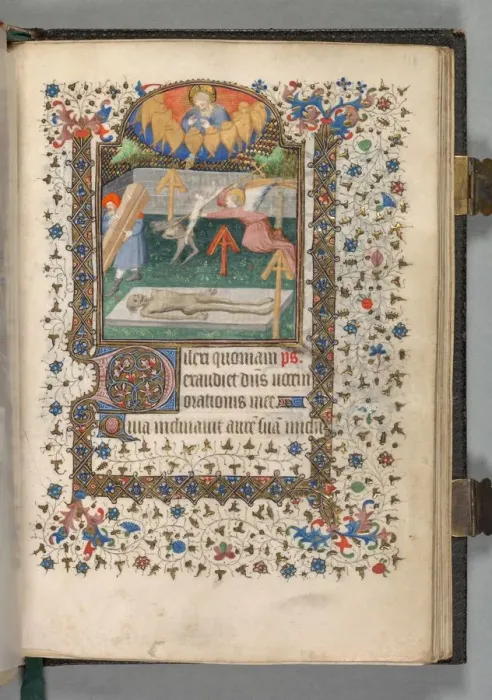 Dilexi quoniam ps.
exaudiet dn̄s uocem
orationis mee.
Quia inclinauit aurē suā michi